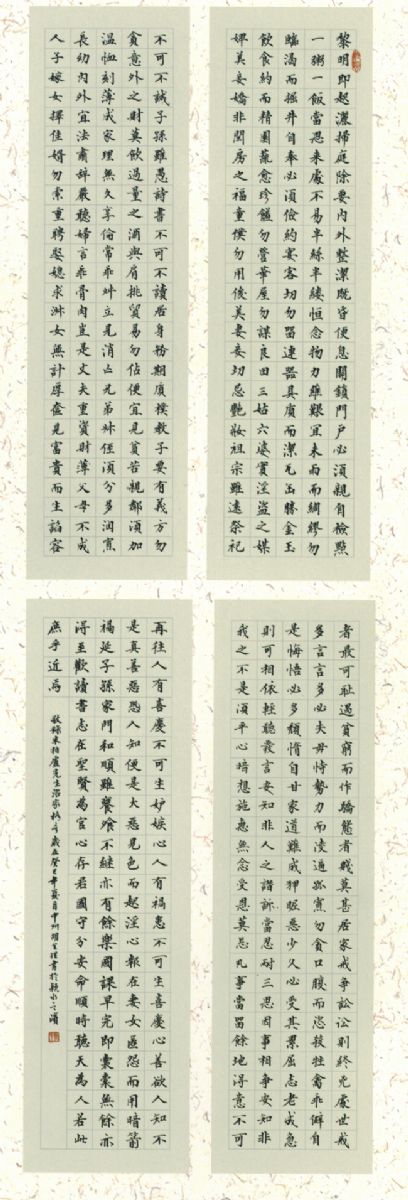 黎明即起灑掃庭除要內外整潔既昏便息關鎖門戶必須親自檢點
一粥一飯當思來處不易半絲半縷恒念物力維艱宜未雨而綢繆勿
臨渴而掘井自奉必須儉約宴客切勿留連器具質而潔瓦缶勝金玉
飲食約而精園蔬愈珍饈勿營華屋勿謀良田三姑六婆實淫盜之媒
婢美妾嬌非閨房之福童僕勿用俊美妻妾切忌艷妝祖宗雖遠祭祀
不可不誠子孫雖愚詩書不可不讀居身務期質樸教子要有義方勿
貪意外之財莫飲過量之酒與肩挑貿易勿佔便宜見貧苦親鄰須加
溫恤刻薄成家理無久享倫常乖舛立見消亡兄弟叔侄須分多潤寡
長幼內外宜法肅辭嚴聽婦言乖骨肉豈是丈夫重資財薄父母不成
人子嫁女擇佳婿勿索重聘娶媳求淑女無計厚奩見富貴而生諂容
者最可恥遇貧窮而作驕態者賤莫甚居家戒爭訟訟則終凶處世戒
多言言多必失毋恃勢力而凌逼孤寡勿貪口腹而恣殺牲禽乖僻自
是悔悟必多頹惰自甘家道難成狎昵惡少久必受其累屈志老成急
則可相依輕聽發言安知非人之譖訴當忍耐三思因事相爭安知非
我之不是須平心暗想施惠無念受恩莫忘凡事當留餘地得意不可
再往人有喜慶不可生妒嫉心人有禍患不可生喜慶心善欲人知不
是真善惡恐人知便是大惡見色而起淫心報在妻女匿怨而用暗箭
禍延子孫家門和順雖饔飧不繼亦有餘樂國課早完即囊橐無餘亦
得至歡讀書志在聖賢為官心存君國守分安命順時聽天為人若此
庶乎近焉
敬錄朱柏廬先生治家格言歲在癸巳年夏月中州胡書於潁水之濱